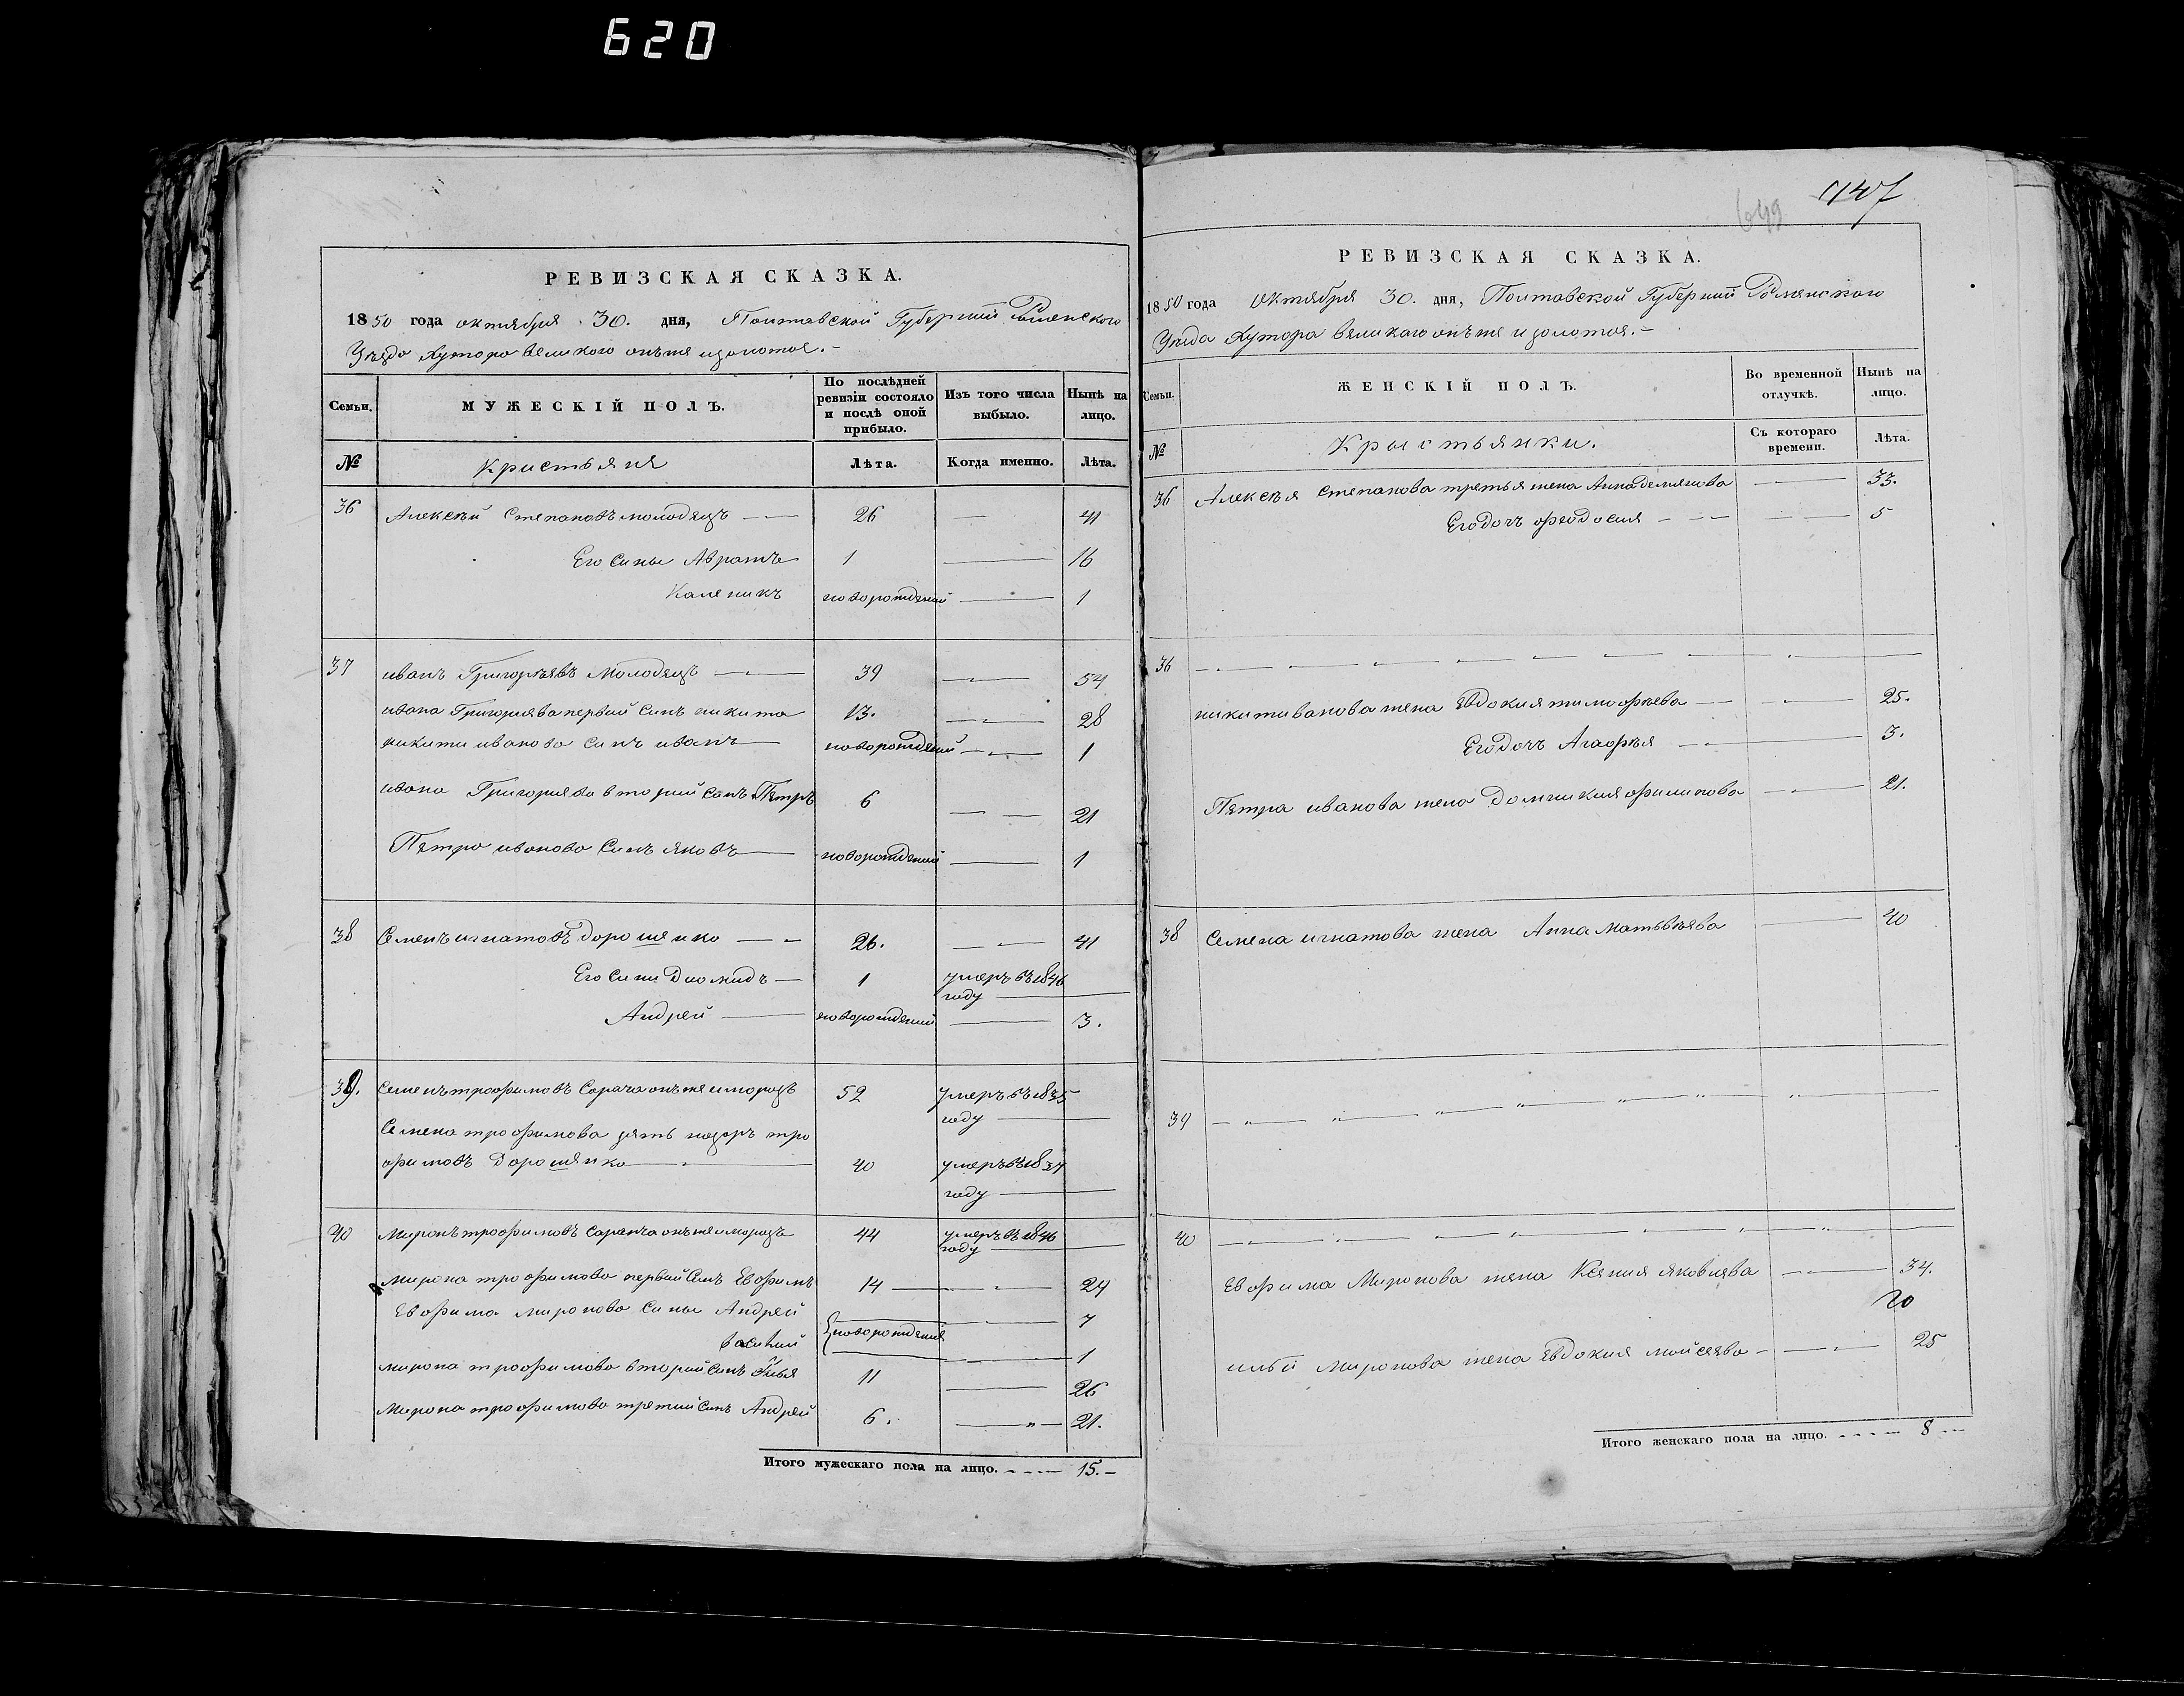 620
РЕВИЗСКАЯ СКАЗКА.
1850 года октября 30. дня, Полтавской Губернии Роменского
Уезда Хутора великого онъже изолотое.-
Семьи. МУЖЕСКІЙ ПОЛЪ. По послѣдней ревизіи состояло и послѣ оной прибыло. Изъ того числа выбыло. Нынѣ на лицо.
№ Кристьяня Лѣта. Когда именно. Лѣта.
36 Алексѣй Степановъ молодецъ 26 — 41
Его сины Аврамъ 1 — 16
Каленикъ новорожденый — 1
37 иванъ Григорѣявъ Молодецъ 39 — 54
ивана Григориява первий синъ никита 13. — 28
никити иванова синъ иванъ новорожденый — 1
ивана Григориява вторий синъ Пятръ 6 — 21
Пятра иванова Синъ яковъ новорожденый — 1
38 Семенъ игнатовъ дорошенко 26. — 41
Его сини Диомидъ 1 умеръ въ 1846
году
Андрей новорожденый — 3.
39. Семенъ трофимовъ Сарача онъже иморозъ 52 умеръ въ 1835
году
Семена трофимова зять назаръ тро
фимовъ дорошянко 40 умеръ въ 1837
году
40 Миронъ трофимовъ Саранча онъже иморозъ 44 умеръ въ 1846
году
Мирона трофимова первий Синъ Евфимъ 14 — 29
Евфима миронова сины Андрей новорожденыя 7
василий 1
мирона трофимова вторий синъ Илья 11 — 26
Мирона трофимова третий синъ Андрей 6. — 21.
Итого мужескаго пола на лицо. 15.-
649
947
РЕВИЗСКАЯ СКАЗКА.
1850 года Октября 30. дня, Полтавской Губернии Роменского
Уезда Хутора вяликаго онъже изолотоя.-
Семьи. ЖЕНСКІЙ ПОЛЪ. Во временной отлучкѣ. Нынѣ на лицо.
№ Крыстьянки. Съ котораго времени. Лѣта.
36 Алексѣя Степанова третья жена Анна демянова — 33.
Его дочъ феодосия — 5
36
никити иванова жена Явдокия тимофѣева — 25.
Его дочъ Агафѣя — 3.
Пятра иванова жена Домникия филипова — 21.
38 Семена игнатова жена Анна Матьвѣява — 40
39
40
Евфима Миронова жена Ксяния яковлява — 34.
20
ильи Миронова жена Евдокия мойсеява — 25
Итого женскаго пола на лицо. 8